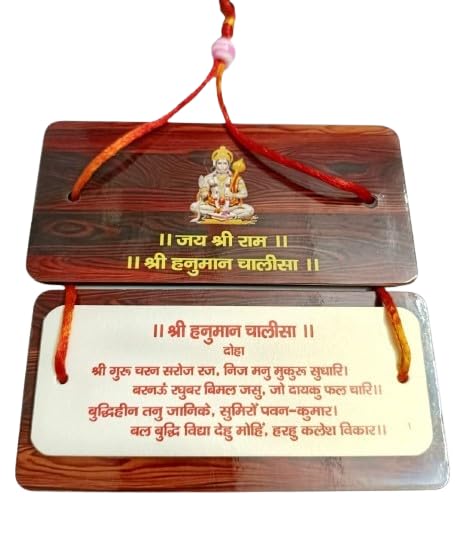 ।। जय श्री राम ।।
।। श्री हनुमान चालीसा ।।
।। श्री हनुमान चालीसा ।।
दोहा
श्री गुरू चरन सरोज रज, निज मनु मुकुरू सुधारि।
बरनऊं रघुबर बिमल जसु, जो दायकु फल चारि।।
बुद्धिहीन तनु जानिके, सुमिरौं पवन-कुमार।
बल बुद्धि विद्या देहु मोहिं, हरहु कलेश विकार।।